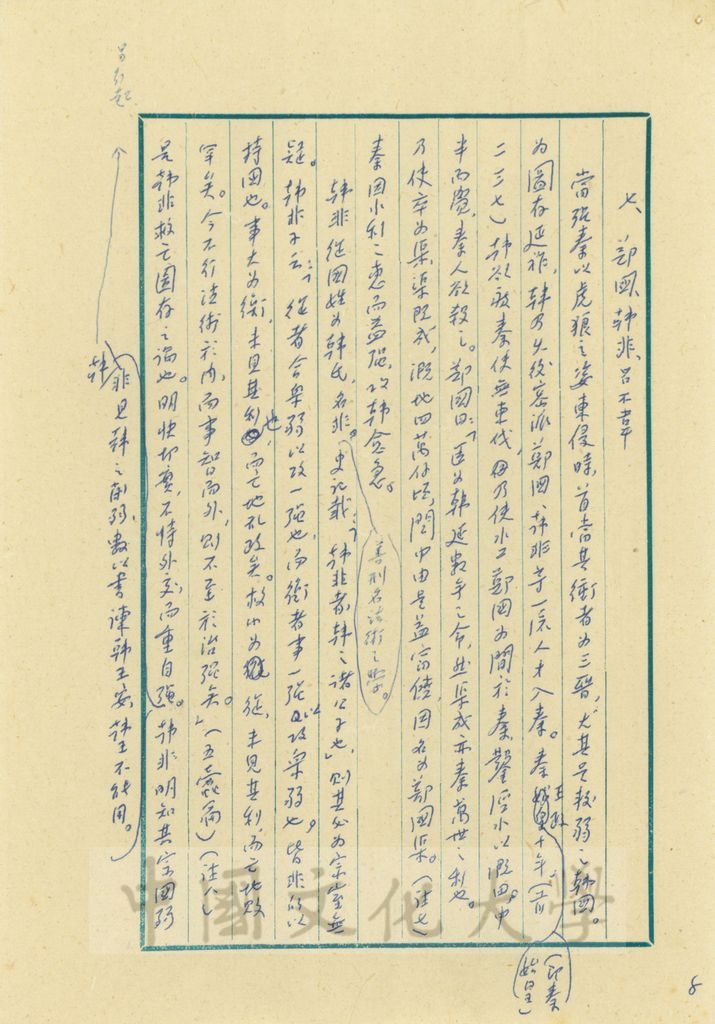 七、鄭國、韓非、呂不韋
當強秦以虎狼之姿東侵時,首當其衝者為三晉,尤其是較弱之韓國。
為圖存延祚,韓乃先後密派鄭國、韓非等一流人才入秦。秦王政十年,(前
(即秦始皇)
二三七)韓欲疲秦使無東伐,毋乃使水工鄭國為間於秦,鑿涇水以溉田。中
半而覺,秦人欲殺之。鄭國曰:「臣為韓延數年之命,然渠成亦秦萬世之利也。
乃使卒為渠,渠既成,溉地四萬仟頃,關中由是益富饒,因名為鄭國渠。(注七)
秦因水利之惠而益強,攻韓愈急。
韓非從國姓為韓氏,名非。史記載:「韓非者,韓之諸公子也」,則其必為宗室無
善刑名法術之學。
疑。韓非子云:「從者合眾弱以攻一強也,而衡者事一強以攻眾弱也。皆非所以
持國也。事大為衡,未見其利也,而亡地亂政矣。救小為從,未見其利,而亡地敗
罕矣。今不行法術於內,而事智而外,則不至於治強矣。」(五蠹篇)(注八)
是韓非救亡圖存之論也。明快切實,不恃外交,而重自強。韓非明知其宗國弱
韓非見韓之削弱,數以書諫韓王安,韓王不能用。
另外起
中國文化大學
8